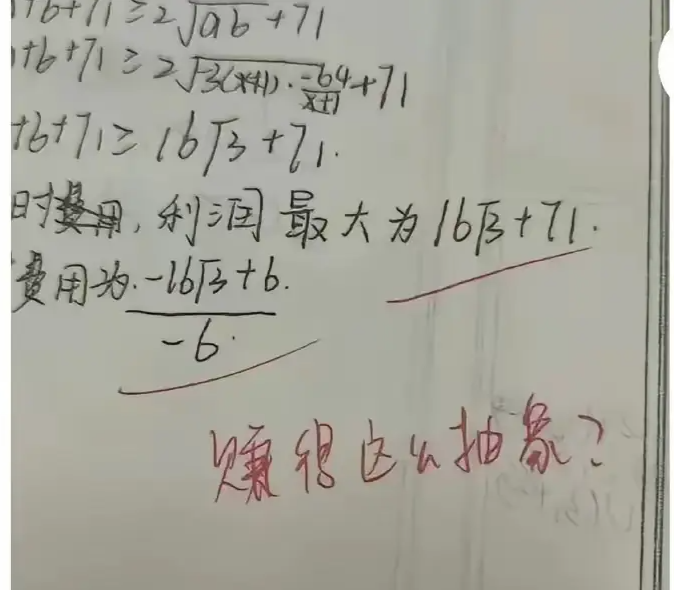 +b+71≥2√ab+71
+b+71≥2√-3(x+1)·-64/x+1+71
+b+71≥16√3+71.
时费用,利润最大为16√3+71.
费用为.-16√3+6./-6.
赚得这么抽象?